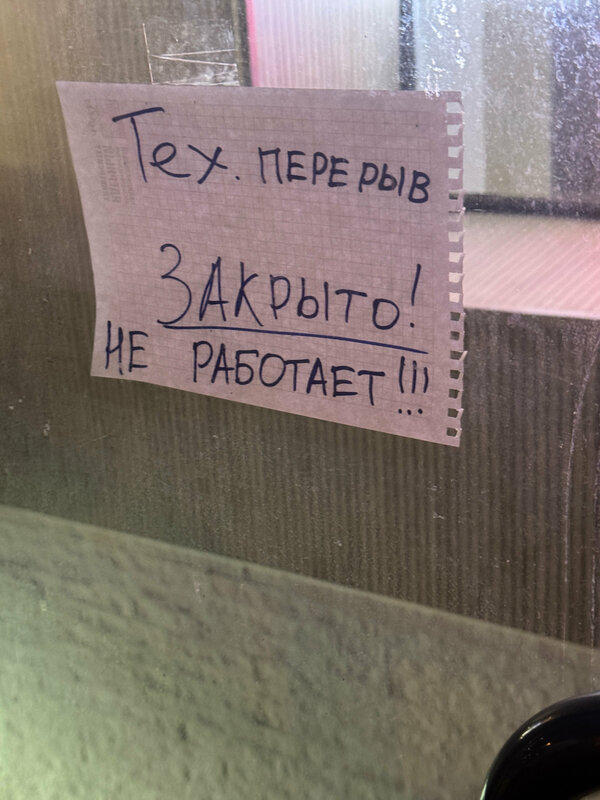 Тех. ПЕРЕРЫВ
ЗАКРЫТО!
НЕ РАБОТАЕТ!!!